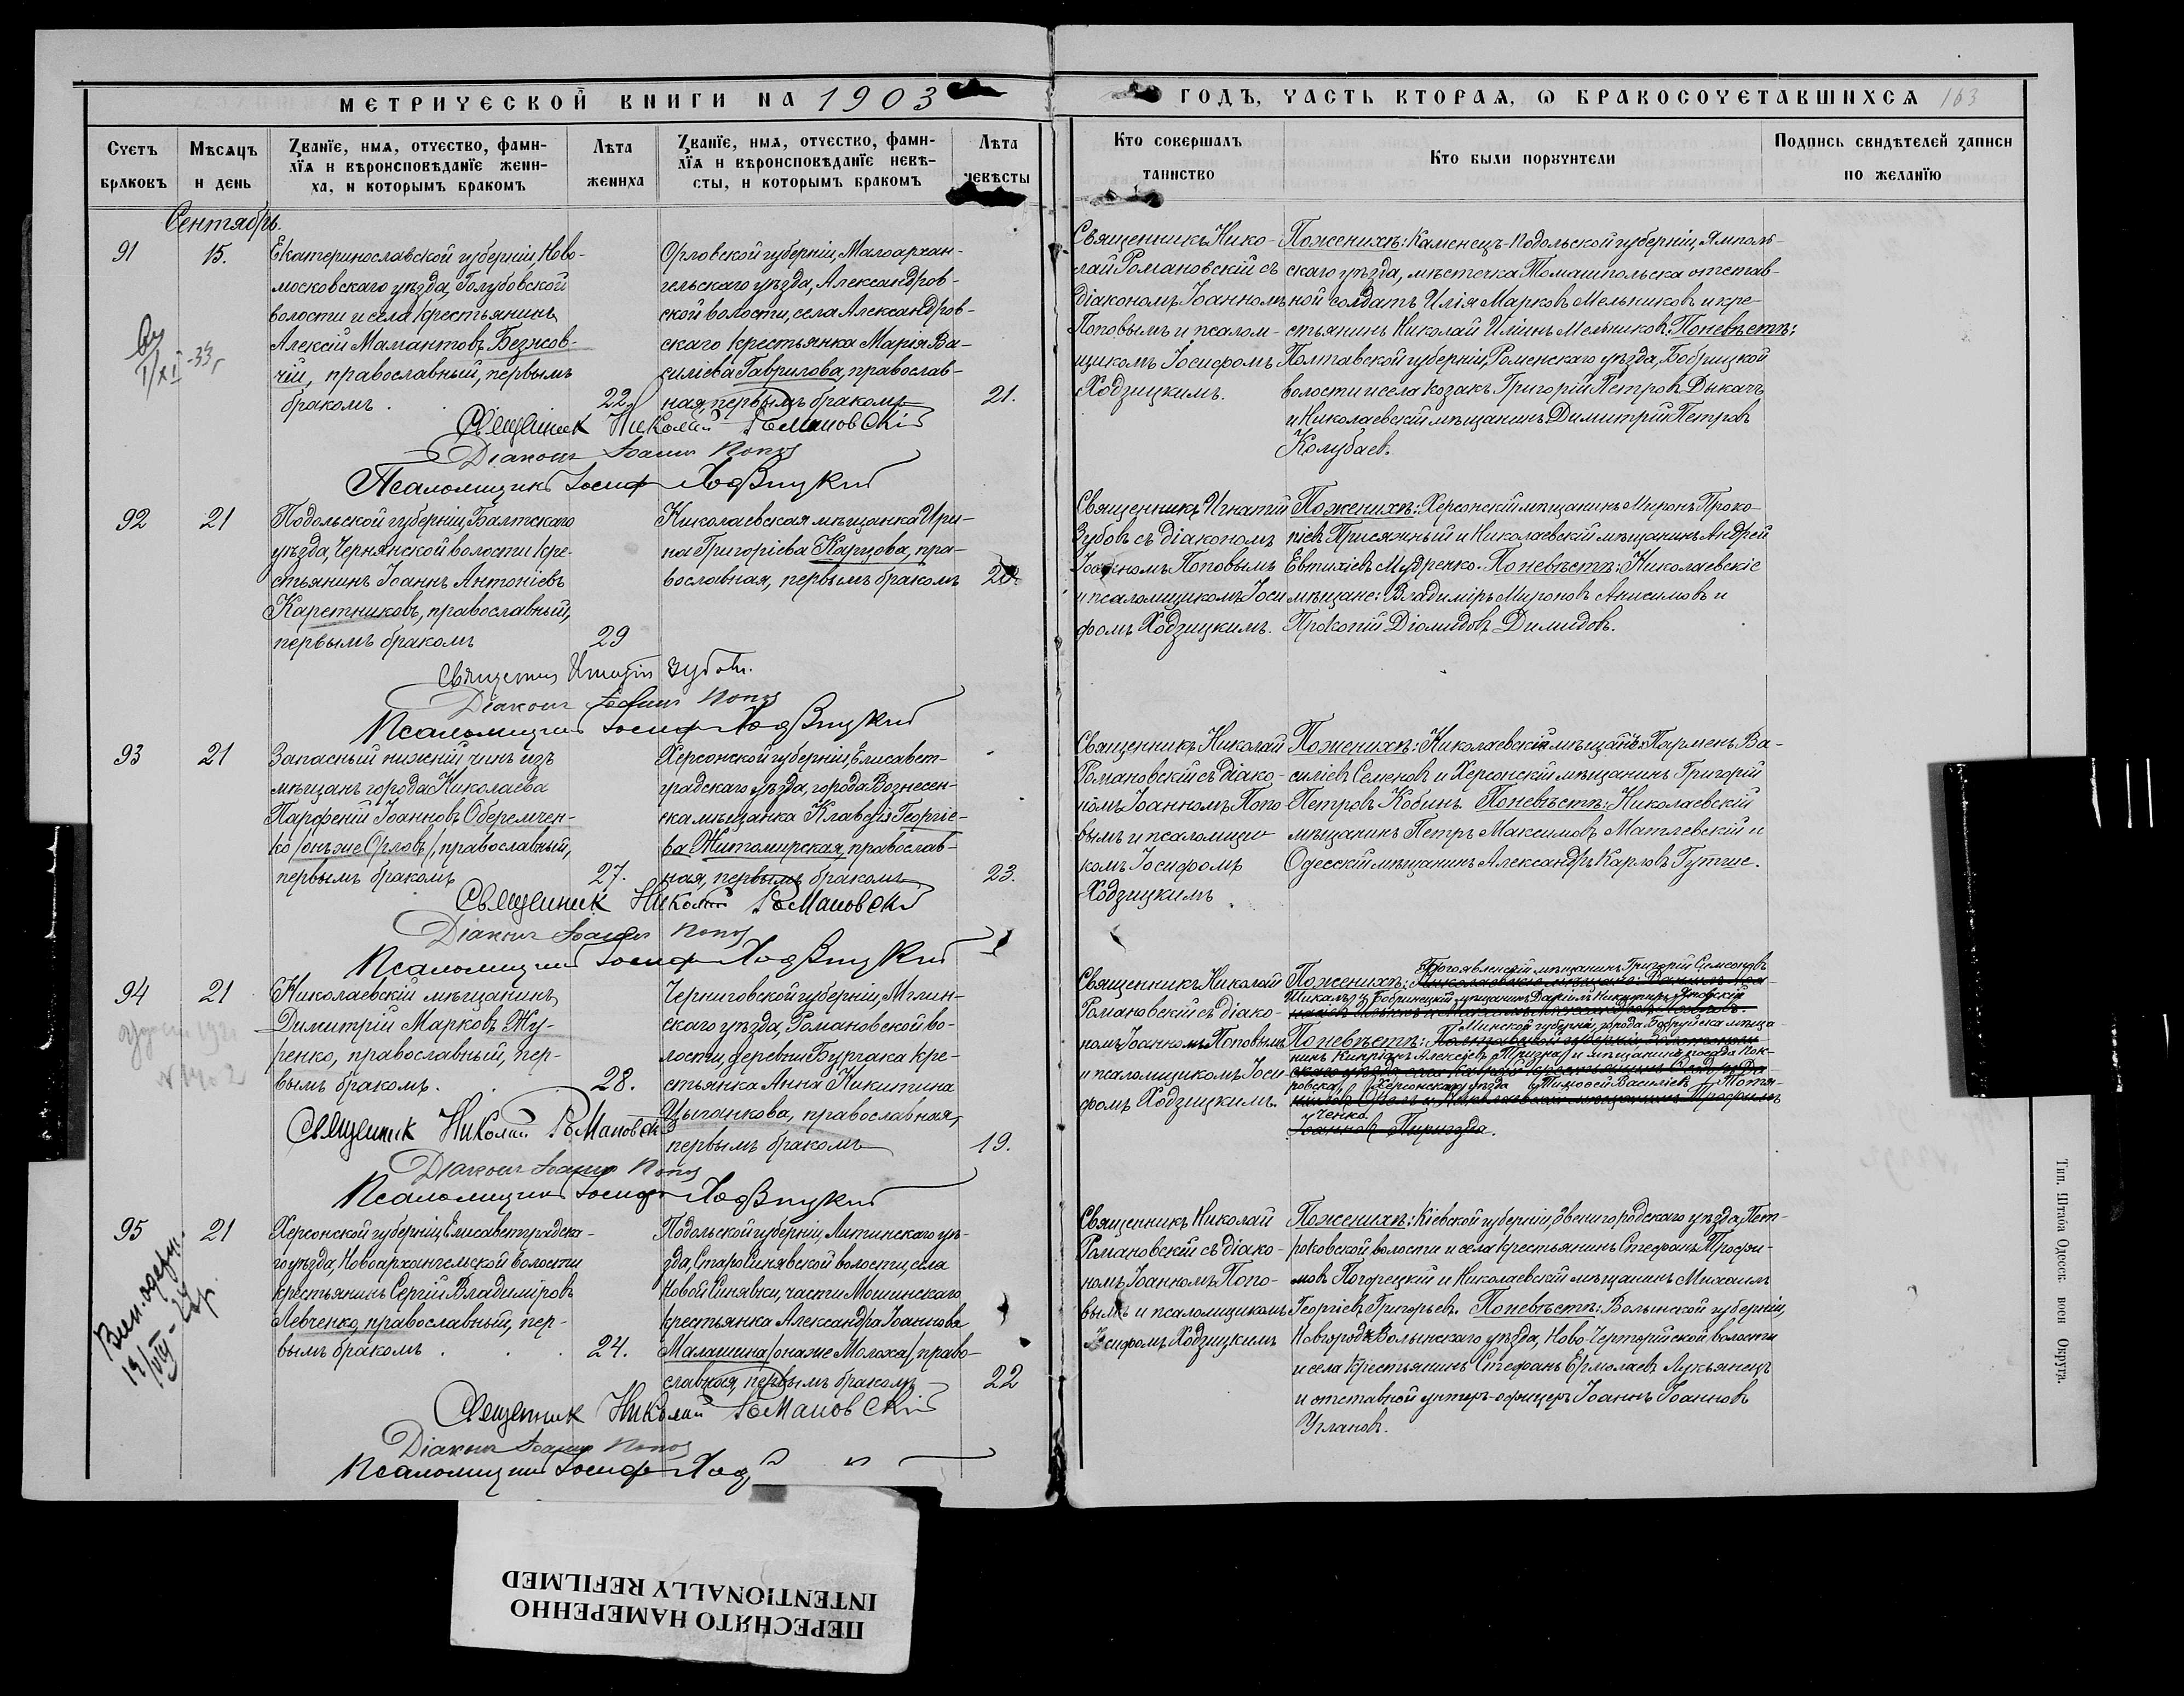 МЕТРИЧЕСКОЙ КНИГИ НА 1903
ГОДЪ, ЧАСТЬ ВТОРАЯ, О БРАКОСОЧЕТАВШИХСЯ 163
Счетъ браковъ
Мѣсяцъ и день
Званїе, имя, отчество, фами-
лїя и вѣроисповѣданїе жени-
ха, и которымъ бракомъ
Лѣта жениха
Званїе, имя, отчество, фами-
лїя и вѣроисповѣданїе невѣ-
сты, и которымъ бракомъ
Лѣта невѣсты
Кто совершалъ таинство
Кто были поручители
Подпись свидѣтелей записи по желанїю
Сентябрь.
91
15.
Екатеринославской губерніи, Ново-
московскаго уѣзда, Голубовской
волости и села крестьянинъ
Алексій Мамантовъ Безнсов-
чій, православный, первымъ
бракомъ.
22.
Орловской губерніи, Малоархан-
гельскаго уѣзда, Александров-
ской волости, села Александров-
скаго крестьянка Марія Ва-
силіева Гаврилова, православ-
ная, первымъ бракомъ
21.
Священникъ Нико-
лай Романовскій съ
діакономъ Іоанномъ
Поповымъ и псалом-
щикомъ Іосифомъ
Ходзицкимъ.
По женихѣ: Каменецъ-Подольской губерніи, Ямполь-
скаго уѣзда, мѣстечка Томашпольска отстав-
ной солдатъ Илія Марковъ Мельниковъ и кре-
стьянинъ Николай Иліинъ Мельниковъ. По невѣстѣ:
Полтавской губерніи, Роменскаго уѣзда, Бобрицкой
волости и села козакъ Григорій Петровъ Дыкачъ
и Николаевскій мѣщанинъ Димитрій Петровъ
Колубаев.
Священникъ Николай Романовскій
Діаконъ Іоаннъ Поповъ
Псаломщикъ Іосифъ Ходзицкій
I/XI-33г
92
21
Подольской губерніи, Балтскаго
уѣзда, Чернянской волости кре-
стьянинъ Іоаннъ Антоніевъ
Каретниковъ, православный,
первымъ бракомъ
29
Николаевская мѣщанка Ири-
на Григоріева Карцова, пра-
вославная, первымъ бракомъ
20.
Священникъ Игнатій
Зубовъ съ діакономъ
Іоанномъ Поповымъ
и псаломщикомъ Іоси
фомъ Ходзицкимъ.
По женихѣ: Херсонскій мѣщанинъ Миронъ Проко-
піев Присяжный и Николаевскій мѣщанинъ Андрей
Евтихіевъ Мудренко. По невѣстѣ: Николаевскіе
мѣщане: Владиміръ Мироновъ Анисимовъ и
Прокопій Діомидовъ Димидовъ.
Священникъ Игнатій Зубовъ.
Діаконъ Іоаннъ Поповъ
Псаломщикъ Іосифъ Ходзицкій
93
21
Запасный нижній чинъ изъ
мѣщанъ города Николаева
Парфеній Іоанновъ Оберемчен-
ко /онъ же Орловъ/, православный,
первымъ бракомъ
27.
Херсонской губерніи, Елисавет-
градскаго уѣзда, города Вознесен-
ска мѣщанка Клавдія Георгіе-
ва Житомирская, православ-
ная, первымъ бракомъ
23.
Священникъ Николай
Романовскій съ діако-
номъ Іоанномъ Попо-
вымъ и псаломщи-
комъ Іосифомъ
Ходзицкимъ
По женихѣ: Николаевскій мѣщанинъ Парменъ Ва-
силіевъ Семеновъ и Херсонскій мѣщанинъ Григорій
Петровъ Кобинъ. По невѣстѣ: Николаевскій
мѣщанинъ Петръ Максимовъ Матлевскій и
Одесскій мѣщанинъ Александръ Карловъ Гутше.
Священникъ Николай Романовскій
Діаконъ Іоаннъ Поповъ
Псаломщикъ Іосифъ Ходзицкій
94
21
Николаевскій мѣщанинъ
Димитрій Марковъ Жу-
ренко, православный, пер-
вымъ бракомъ.
28.
Черниговской губерніи, Мглин-
скаго уѣзда, Романовской во-
лости, деревни Бургака кре-
стьянка Анна Никитина
Цыганкова, православная,
первымъ бракомъ
19.
Священникъ Николай
Романовскій съ діако-
номъ Іоанномъ Поповымъ
и псаломщикомъ Іоси-
фомъ Ходзицкимъ.
По женихѣ: Богоявленскій мѣщанинъ Григорій Симеоновъ
Шикалъ и Бобринецкій мѣщанинъ Даніилъ Никитинъ Яновскій
По невѣстѣ: Минской губерніи, города Бобруйска мѣща-
нинъ Кипріанъ Алексіевъ Тризна и мѣщанинъ посада Пок-
ровска, Херсонскаго уѣзда Тимофей Василіевъ Потя-
ченко
Іоанновъ Пирогда.
Священникъ Николай Романовскій
Діаконъ Іоаннъ Поповъ
Псаломщикъ Іосифъ Ходзицкій
95
21
Херсонской губерніи, Елисаветградска-
го уѣзда, Новоархангельской волости
крестьянинъ Сергій Владиміровъ
Левченко, православный, пер-
вымъ бракомъ
24.
Подольской губерніи, Литинскаго уѣ-
зда, Старо Синявской волости, села
Новой Синявки, части Мошинскаго
крестьянка Александра Іоаннова
Малашина /она же Молоха/, право-
славная, первымъ бракомъ
22
Священникъ Николай
Романовскій съ діако-
номъ Іоанномъ Попо-
вымъ и псаломщикомъ
Іосифомъ Ходзицкимъ
По женихѣ: Кіевской губерніи, Звенигородскаго уѣзда, Пет-
роковской волости и села крестьянинъ Стефанъ Трофи-
мовъ Погорецкій и Николаевскій мѣщанинъ Михаилъ
Георгіевъ Григорьевъ. По невѣстѣ: Волынской губерніи,
Новгородъ Волынскаго уѣзда, Ново-Черторійской волости
и села крестьянинъ Стефанъ Ермолаевъ Лукьянецъ
и отставной унтеръ-офицеръ Іоаннъ Іоанновъ
Углановъ.
Священникъ Николай Романовскій
Діаконъ Іоаннъ Поповъ
Псаломщикъ Іосифъ Ход
Тип. Штаба Одесск. воен. Округа.
ПЕРЕСНЯТО НАМЕРЕННО
INTENTIONALLY REFILMED